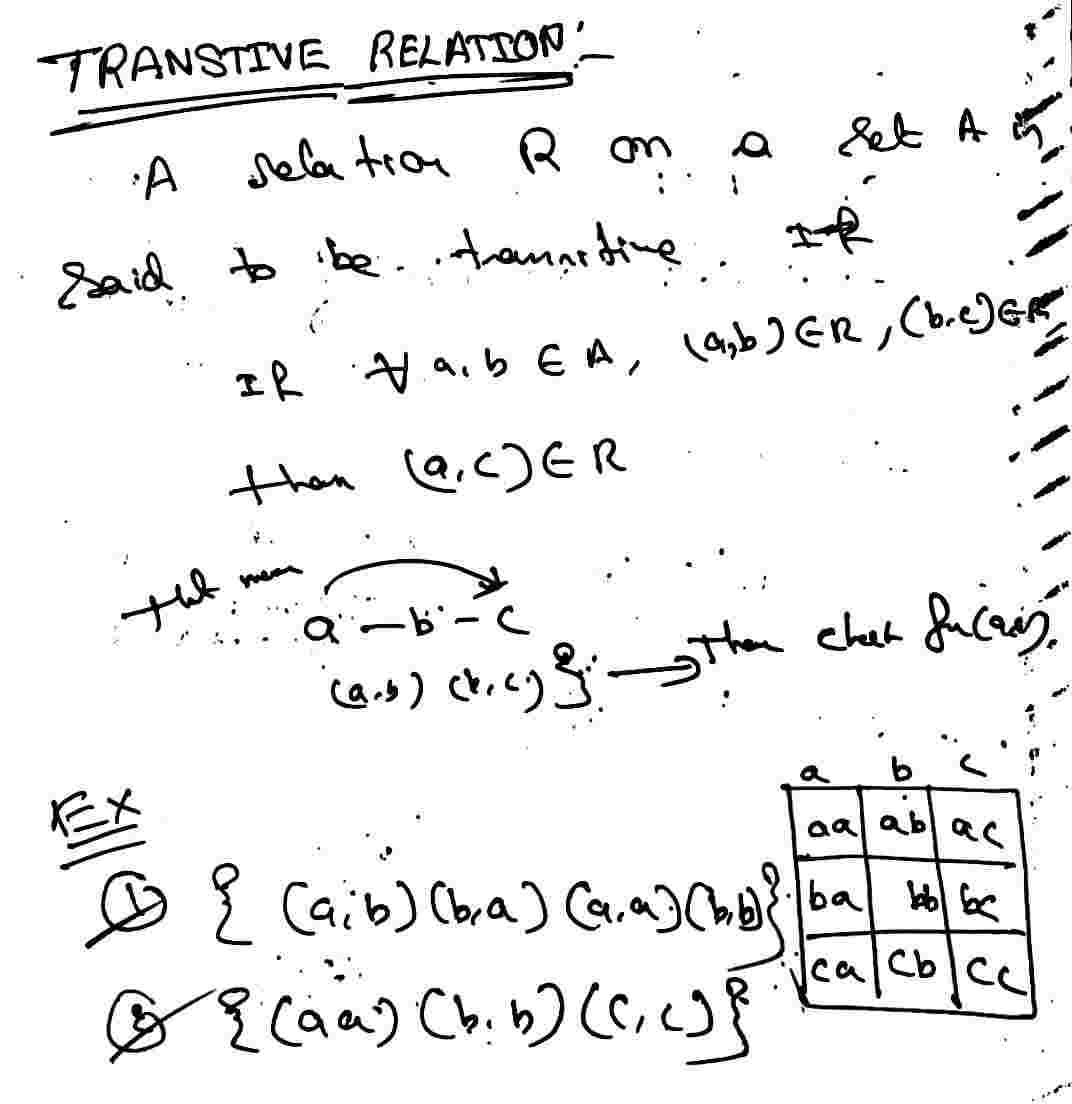 TRANSTIVE RELATION:-
A relation R on a set A is
said to be transitive If
If ∀ a, b ∈ A, (a,b) ∈ R, (b,c) ∈ R
than (a,c) ∈ R
that mean
a - b - c
(a,b) (b,c) } → then check for (a,c).
EX
① { (a,b) (b,a) (a,a) (b,b) }
② { (a a) (b,b) (c,c) }
a b c
aa ab ac
ba bb bc
ca cb cc